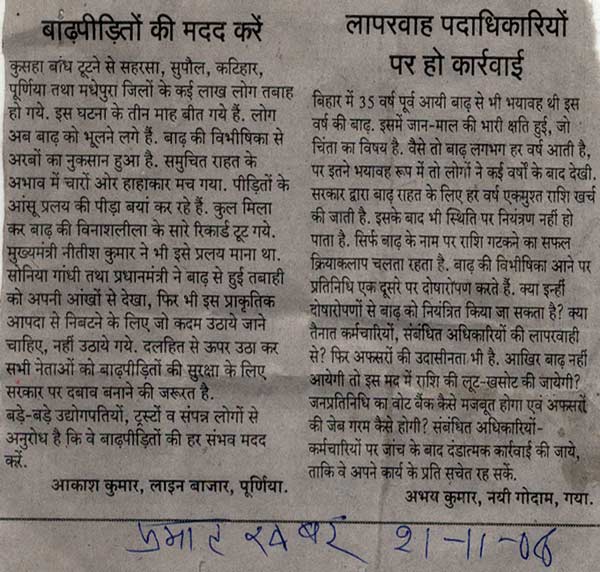 बाढ़पीड़ितों की मदद करें
कुसहा बांध टूटने से सहरसा, सुपौल, कटिहार,
पूर्णिया तथा मधेपुरा जिलों के कई लाख लोग तबाह
हो गये. इस घटना के तीन माह बीत गये हैं. लोग
अब बाढ़ को भूलने लगे हैं. बाढ़ की विभीषिका से
अरबों का नुकसान हुआ है. समुचित राहत के
अभाव में चारों ओर हाहाकार मच गया. पीड़ितों के
आंसू प्रलय की पीड़ा बयां कर रहे हैं. कुल मिला
कर बाढ़ की विनाशलीला के सारे रिकार्ड टूट गये.
मुख्यमंत्री नीतीश कुमार ने भी इसे प्रलय माना था.
सोनिया गांधी तथा प्रधानमंत्री ने बाढ़ से हुई तबाही
को अपनी आंखों से देखा, फिर भी इस प्राकृतिक
आपदा से निबटने के लिए जो कदम उठाये जाने
चाहिए, नहीं उठाये गये. दलहित से ऊपर उठा कर
सभी नेताओं को बाढ़पीड़ितों की सुरक्षा के लिए
सरकार पर दबाव बनाने की जरूरत है.
बड़े-बड़े उद्योगपतियों, ट्रस्टों व संपन्न लोगों से
अनुरोध है कि वे बाढ़पीड़ितों की हर संभव मदद
करें.
आकाश कुमार, लाइन बाजार, पूर्णिया.
लापरवाह पदाधिकारियों
पर हो कार्रवाई
बिहार में 35 वर्ष पूर्व आयी बाढ़ से भी भयावह थी इस
वर्ष की बाढ़. इसमें जान-माल की भारी क्षति हुई, जो
चिंता का विषय है. वैसे तो बाढ़ लगभग हर वर्ष आती है,
पर इतने भयावह रूप में तो लोगों ने कई वर्षों के बाद देखी.
सरकार द्वारा बाढ़ राहत के लिए हर वर्ष एकमुश्त राशि खर्च
की जाती है. इसके बाद भी स्थिति पर नियंत्रण नहीं हो
पाता है. सिर्फ बाढ़ के नाम पर राशि गटकने का सफल
क्रियाकलाप चलता रहता है. बाढ़ की विभीषिका आने पर
प्रतिनिधि एक दूसरे पर दोषारोपण करते हैं. क्या इन्हीं
दोषारोपणों से बाढ़ को नियंत्रित किया जा सकता है? क्या
तैनात कर्मचारियों, संबंधित अधिकारियों की लापरवाही
से? फिर अफसरों की उदासीनता भी है. आखिर बाढ़ नहीं
आयेगी तो इस मद में राशि की लूट-खसोट की जायेगी?
जनप्रतिनिधि का वोट बैंक कैसे मजबूत होगा एवं अफसरों
की जेब गरम कैसे होगी? संबंधित अधिकारियों-
कर्मचारियों पर जांच के बाद दंडात्मक कार्रवाई की जाये,
ताकि वे अपने कार्य के प्रति सचेत रह सकें.
अभय कुमार, नयी गोदाम, गया.
प्रभात खबर 21-11-08